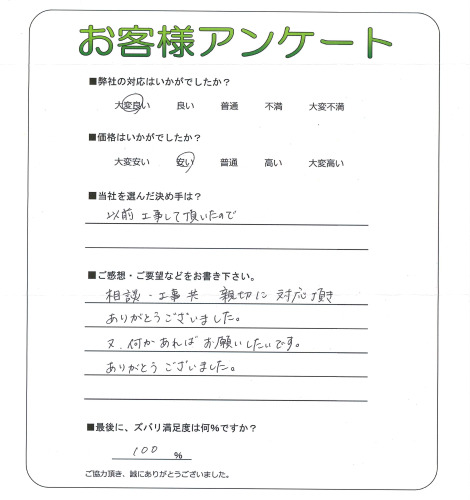 お客様アンケート
■弊社の対応はいかがでしたか？
大変良い 良い 普通 不満 大変不満
■価格はいかがでしたか？
大変安い 安い 普通 高い 大変高い
■当社を選んだ決め手は？
以前 工事して頂いたので
■ご感想・ご要望などをお書き下さい。
相談・工事共 親切に対応頂き
ありがとうございました。
又、何かあればお願いしたいです。
ありがとうございました。
■最後に、ズバリ満足度は何%ですか？
100 %
ご協力頂き、誠にありがとうございました。